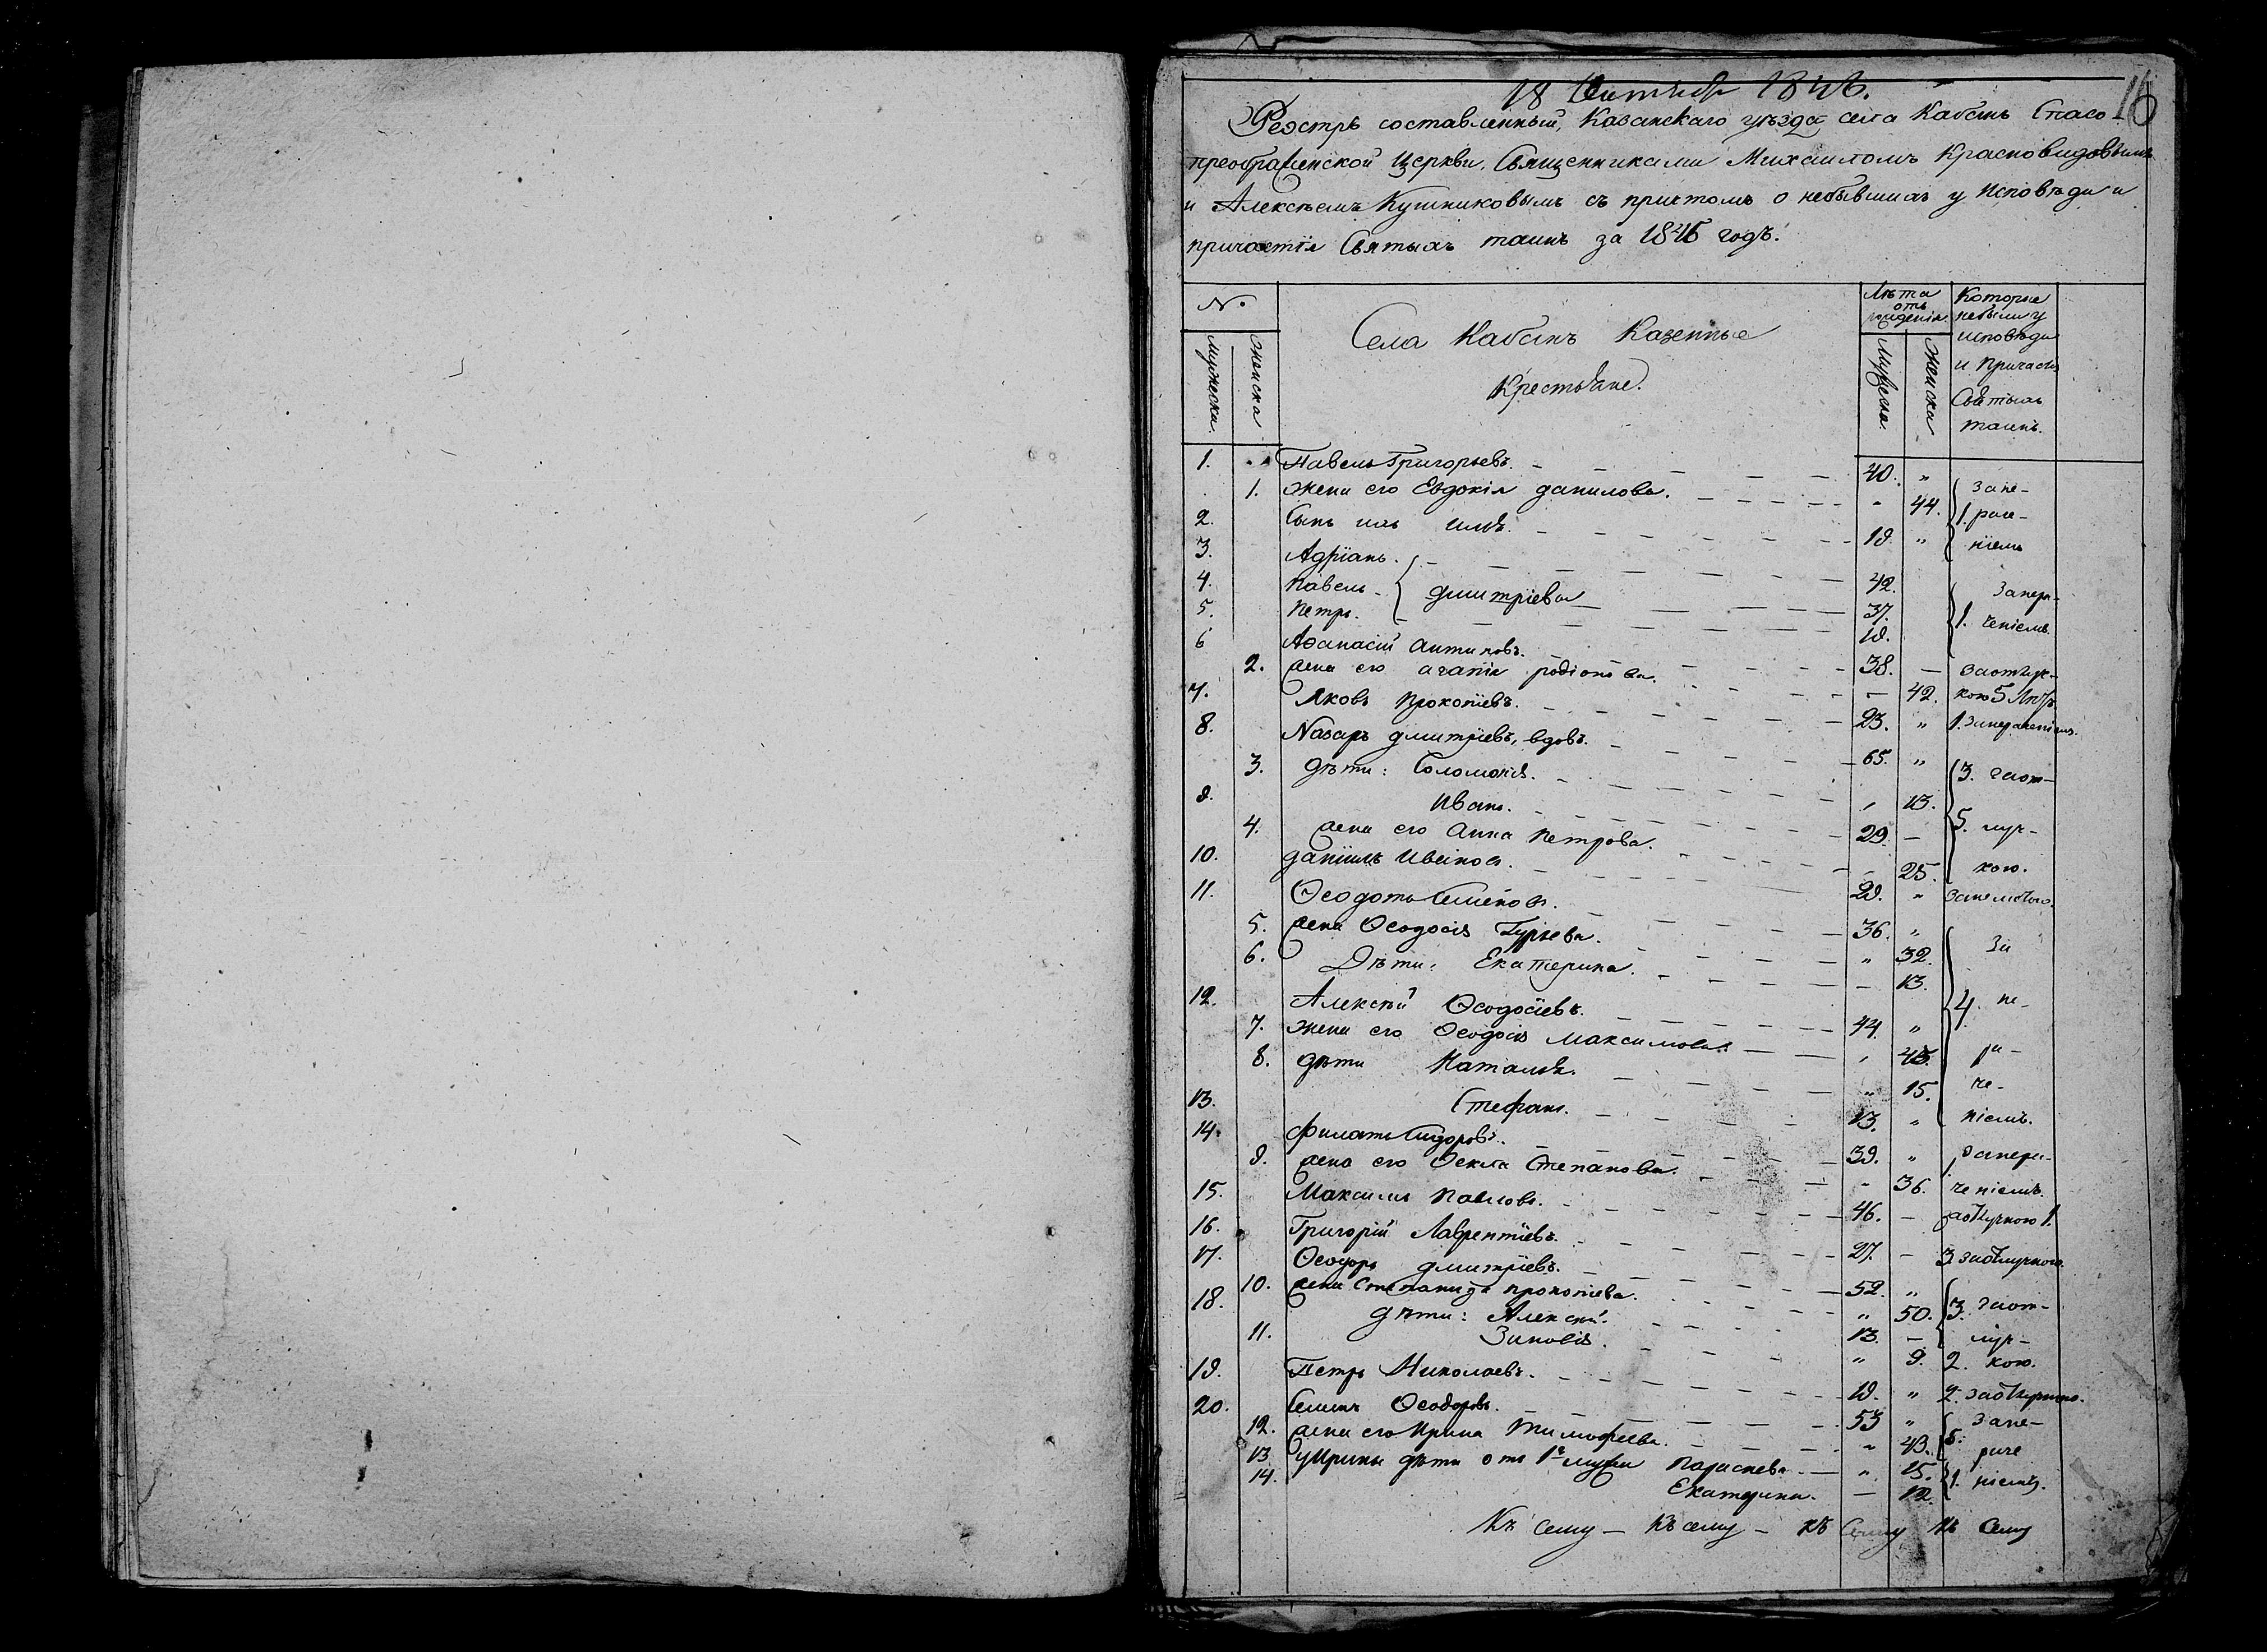 16
18 Октября 1846.
Реэстръ составленный, Казанскаго уѣзда села Кабанъ Спасо
преображенской Церкви, Священниками Михаиломъ Красновидовымъ
и Алексѣемъ Кушниковымъ съ причтомъ о небывшихъ у Исповѣди и
причастія Святыхъ таинъ за 1846 годъ.
№
Мужеска.
Женска
Села Кабанъ Казенные
Крестьяне.
Лѣта
отъ
рожденія
Мужеска.
Женска
Которые
небыли у
исповѣди
и Причастія
Святыхъ
таинъ.
1. Павелъ Григорьевъ. 40. "
1. жена его Евдокія данилова. " 44.
2. Сынъ ихъ Илья. 19. "
{ 1. Зане-
раче-
ніемъ
3. Адріанъ. 42.
4. Павелъ { дмитріевы 37.
5. Петръ. 19.
{ 1. Занера-
ченіемъ.
6 Аѳанасій Антиповъ. 38. —
2. жена его агаѳія родіонова. — 42.
заотлуч-
кою 5 Лѣтъ
7. Яковъ Прокопіевъ. 23. " 1. занераченіемъ.
8. Назаръ дмитріевъ, вдовъ. 65. "
3. дѣти: Соломонія. , 13.
9. Иванъ. 29. —
4. жена его Анна Петрова. - 25.
{ 3. заот-
5. луч-
кою.
10. даніилъ Ивановъ. 29. "
11. Ѳеодотъ Семеновъ. 36. "
5. жена Ѳеодосія Гурьева. " 32.
6. Дѣти: Екатерина. — 13.
12. Алексѣй Ѳеодосіевъ. 44. "
7. жена его Ѳеодосія Максимова. , 45.
8. дѣти Наталья. " 15.
13. Стефанъ. 13. "
{ 4. За
не-
ра-
че-
ніемъ.
14. Филатъ Сидоровъ. 39. "
9. жена его Ѳекла Степанова. - 36.
1. занера-
ченіемъ.
15. Максимъ Павловъ. 46. — заотлучкою 1.
16. Григорій Лаврентіевъ. 27. — 3. заотлучкою.
17. Ѳеодоръ дмитріевъ. 52. "
10. жена Степанида прокопіева. " 50.
18. дѣти: Алексѣй. 13. —
11. Зиновія. " 9.
{ 3. заот-
луч-
2. кою.
19. Петръ Николаевъ. 19. " 2. заотлучкою.
20. Семенъ Ѳеодоровъ. 53 "
12. жена его Ирина Тимофеева. " 43.
13 у Ирины дѣти отъ 1го мужа Параскева. — " 15.
14. Екатерина. — 12.
{ 5. Зане-
раче
1. ніемъ.
Къ сему — Къ сему — къ Сему Къ Сему